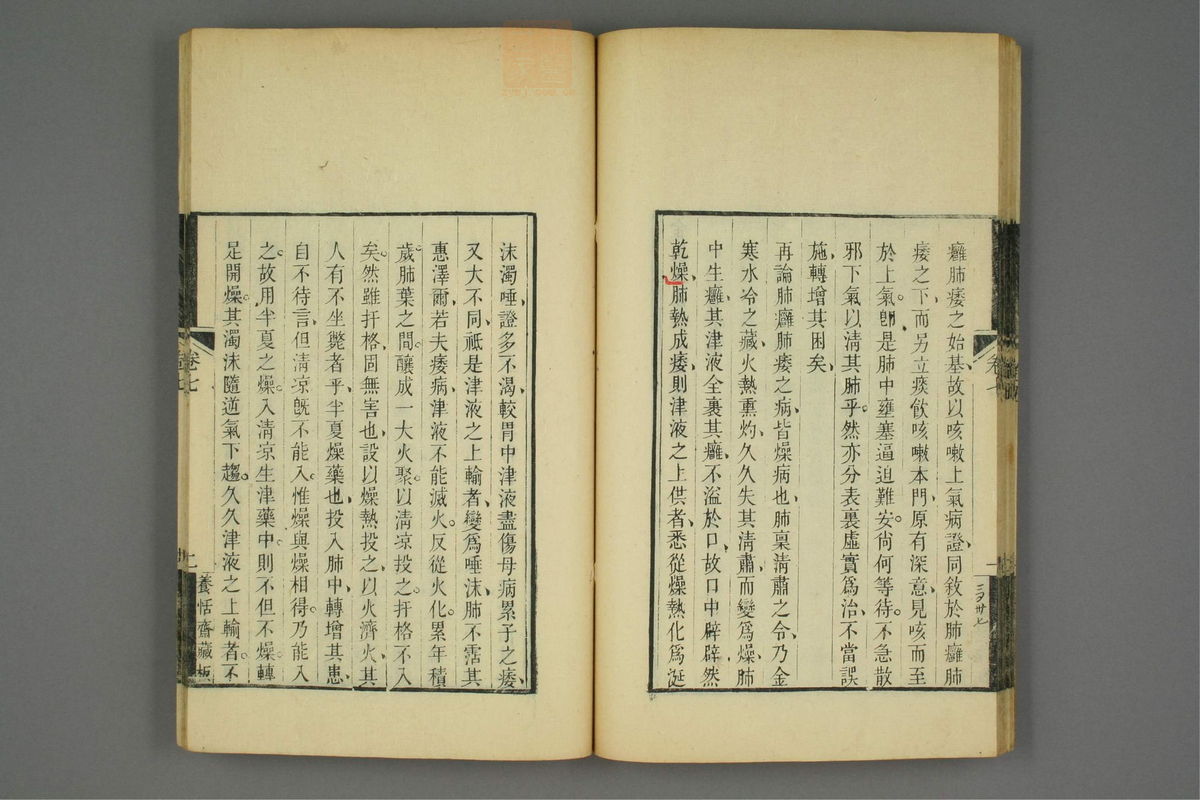 癰肺痿之始基、故以咳嗽上氣病證、同敘於肺癰肺
痿之下、而另立痰飲咳嗽本門、原有深意、見咳而至
於上氣。卽是肺中壅塞逼迫難安。尙何等待。不急散
邪下氣以淸其肺乎。然亦分表裏虛實爲治、不當誤
施、轉增其困矣、
再論肺癰肺痿之病、皆燥病也、肺稟淸肅之令、乃金
寒水冷之藏、火熱熏灼、久久失其淸肅、而變爲燥、肺
中生癰、其津液全裹其癰、不溢於口、故口中辟辟然
乾燥、肺熱成痿、則津液之上供者、悉從燥熱化爲涎
沫濁唾、證多不渴、較胃中津液盡傷母病累子之痿、
又大不同、祗是津液之上輸者、變爲唾沫、肺不霑其
惠澤爾、若夫痿病、津液不能滅火。反從火化。累年積
歲。肺葉之間。釀成一大火聚。以淸凉投之。扞格不入
矣。然雖扞格、固無害也、設以燥熱投之、以火濟火、其
人有不坐斃者乎、半夏燥藥也、投入肺中、轉增其患、
自不待言、但淸凉旣不能入。惟燥與燥相得。乃能入
之。故用半夏之燥。入淸凉生津藥中。則不但不燥。轉
足開燥。其濁沫隨逆氣下趨。久久津液之上輸者。不
卷七
十一
三夕廿七
卷七
十一
養恬齋藏板